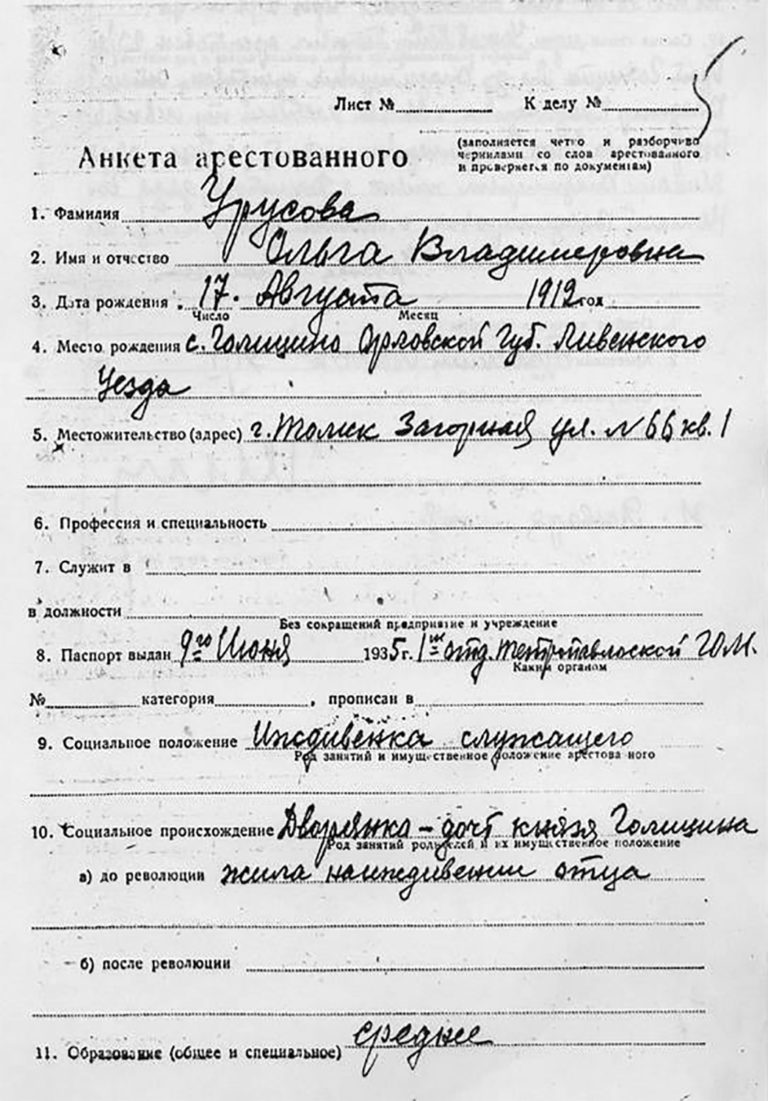 Лист № К делу №
Анкета арестованного
(заполняется четко и разборчиво
чернилами со слов арестованного
и проверяется по документам)
1. Фамилия Урусова
2. Имя и отчество Ольга Владимеровна
3. Дата рождения 17. Августа 1912 год
Число Месяц
4. Место рождения с. Голицино Орловской Губ. Ливенского
Уезда
5. Местожительство (адрес) г. Томск Загорная ул. № 66 кв. 1
6. Профессия и специальность
7. Служит в
в должности
Без сокращений предприятие и учреждение
8. Паспорт выдан 9го Июня 1935 г. 1м отд. Петропавлоской ГОМ.
Каким органом
№ категория , прописан в
9. Социальное положение Иждивенка служащего
Род занятий и имущественное положение арестова ного
10. Социальное происхождение Дворянка – дочь князя Голицина
Род занятий родителей и их имущественное положение
а) до революции жила наиждивении отца
б) после революции
11. Образование (общее и специальное) среднее